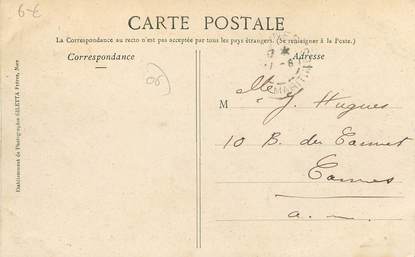 6-€
CARTE POSTALE
La Correspondance au recto n'est pas acceptée par tous les pays étrangers. (Se renseigner à la Poste.)
Correspondance
Adresse
06
Mlle J. Hugues
10 B. du Cannet
Cannes
a. m.
Etablissement de Photographie GILETTA Frères, Nice